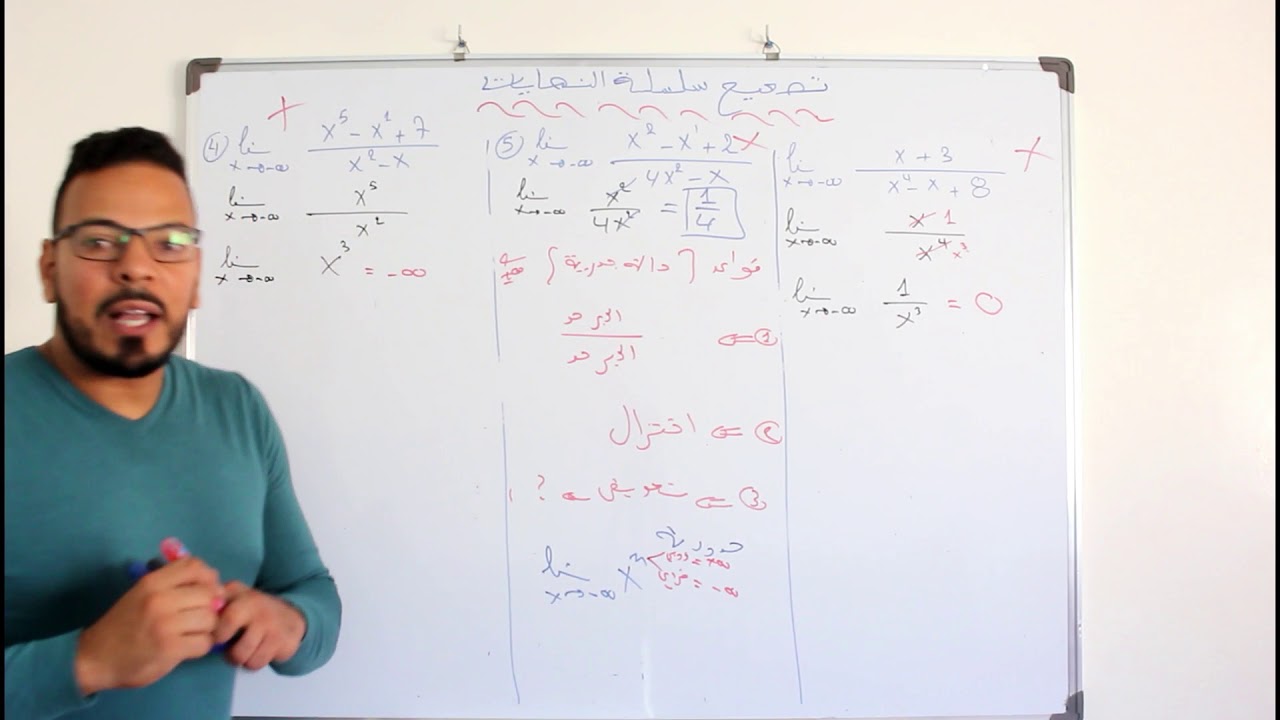 تصحيح سلسلة النهايات
④ lim x→-∞ (x⁵ - x¹ + 7)/(x² - x)
lim x→-∞ x⁵/x²
lim x→-∞ x³ = -∞
⑤ lim x→-∞ (x² - x¹ + 2)/(4x² - x)
lim x→-∞ x²/4x² = 1/4
الأكبر حد
الأكبر حد
① ⇐
② ⇐ اختزال
③ ⇐ تعويض ?
lim x→-∞ xⁿ
زوجي = +∞
فردي = -∞
lim x→-∞ (x + 3)/(x⁴ - x + 8)
lim x→-∞ x 1/x⁴ x³
lim x→-∞ 1/x³ = 0